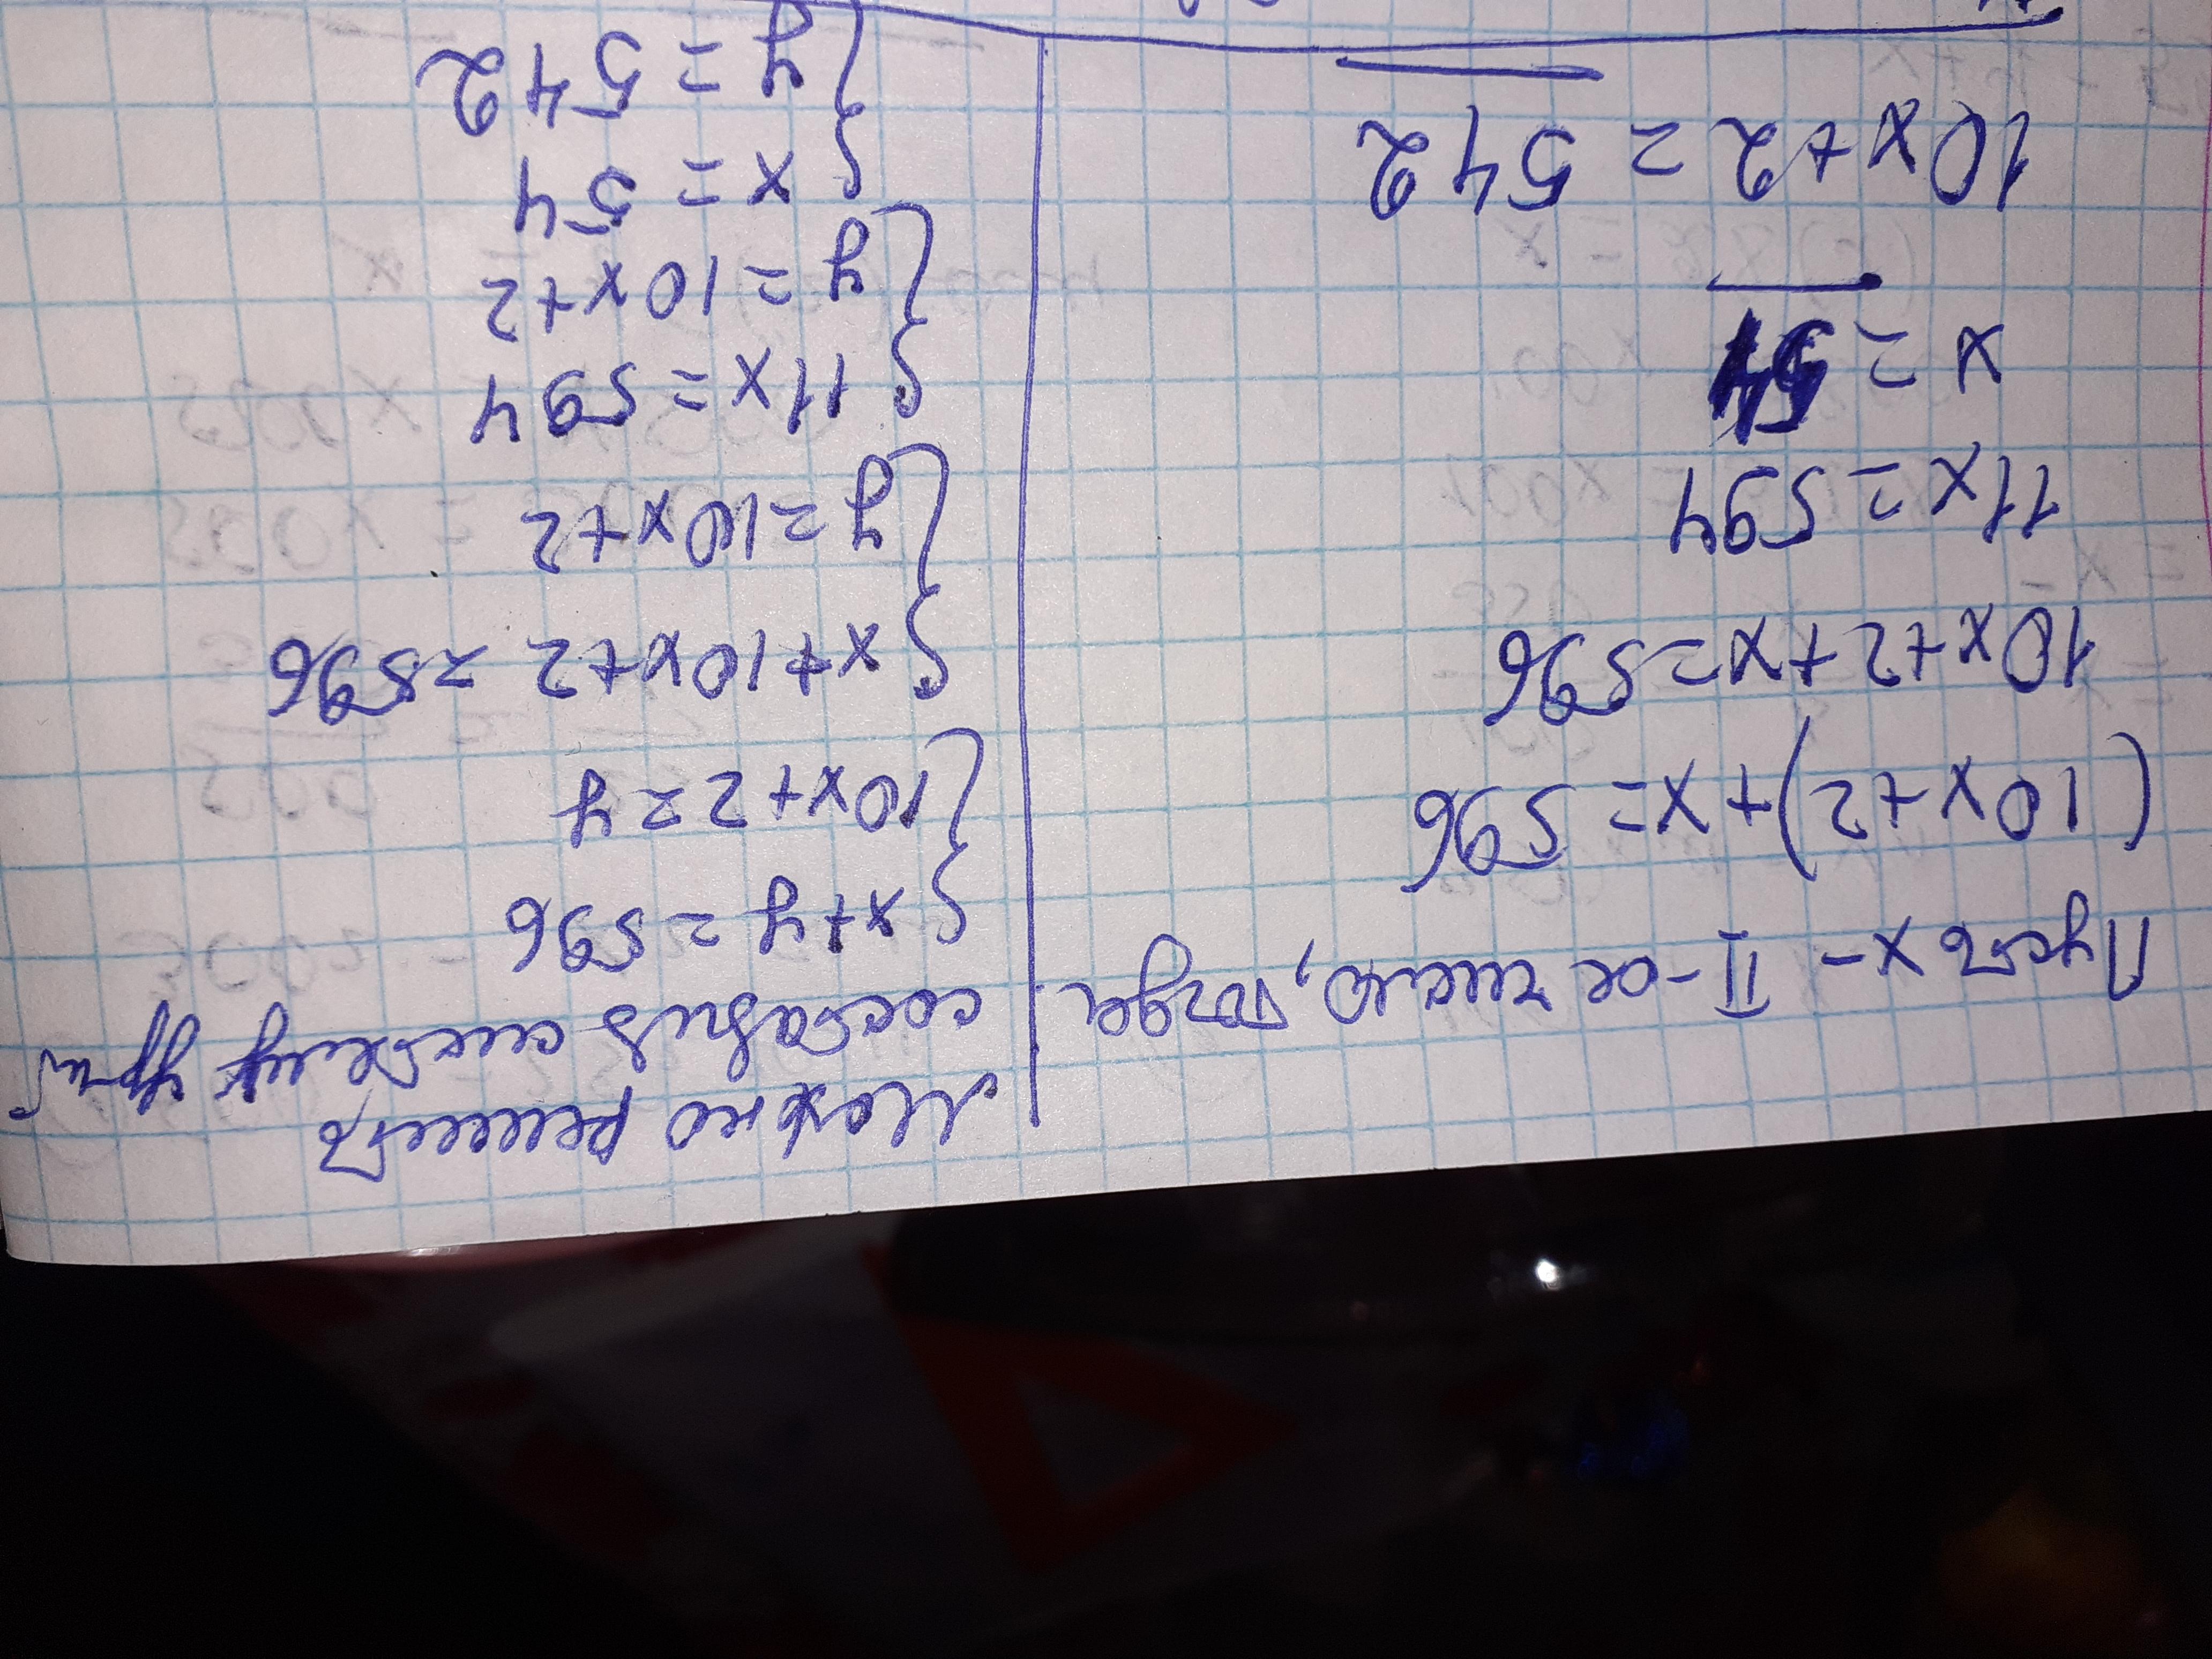 Пусть x - II-ое число, тогда
(10x+2)+x=596
10x+2+x=596
11x=594
x=54
10x+2=542
Можно решить
составив систему ур-ий
{x+y=596
{10x+2=y
{x+10x+2=596
{y=10x+2
{11x=594
{y=10x+2
{x=54
{y=542